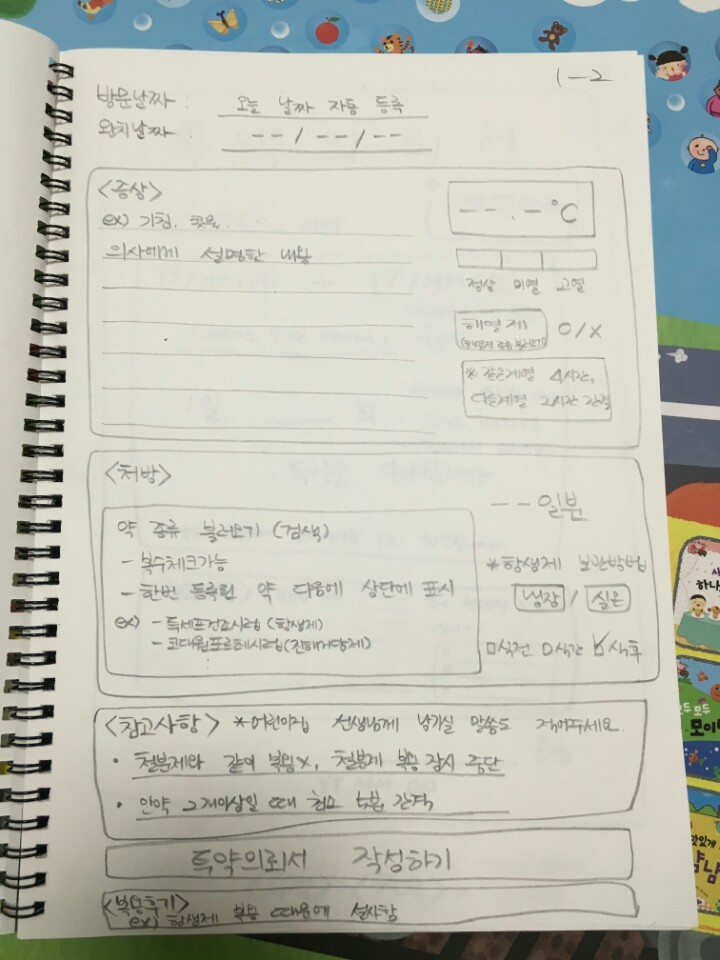 1-2
방문날짜 : 오늘 날짜 자동 등록
완치날짜 : -- / -- / --
<증상>
ex) 기침, 콧물
의사에게 설명한 내용
-- . - °C
정상 미열 고열
해열제 O/X
※ 같은계열 4시간,
다른계열 2시간 간격
<처방>
--일분
약 종류 불러오기 (검색)
- 복수체크가능
- 한번 등록된 약 다음에 상단에 표시
ex) - 특세프건조시럽 (항생제)
- 코대원포르테시럽 (진해거담제)
*항생제 보관방법
냉장 / 실온
□식전 □식간 ☑식후
<참고사항> *어린이집 선생님께 남기실 말씀도 적어주세요.
• 철분제와 같이 복용X, 철분제 복용 잠시 중단
• 안약 2개이상일 때 최소 5분 간격
투약의뢰서 작성하기
<복용후기>
ex) 항생제 복용 때문에 설사함
사
하나
모두 모두
모이
맛있게
냠냠